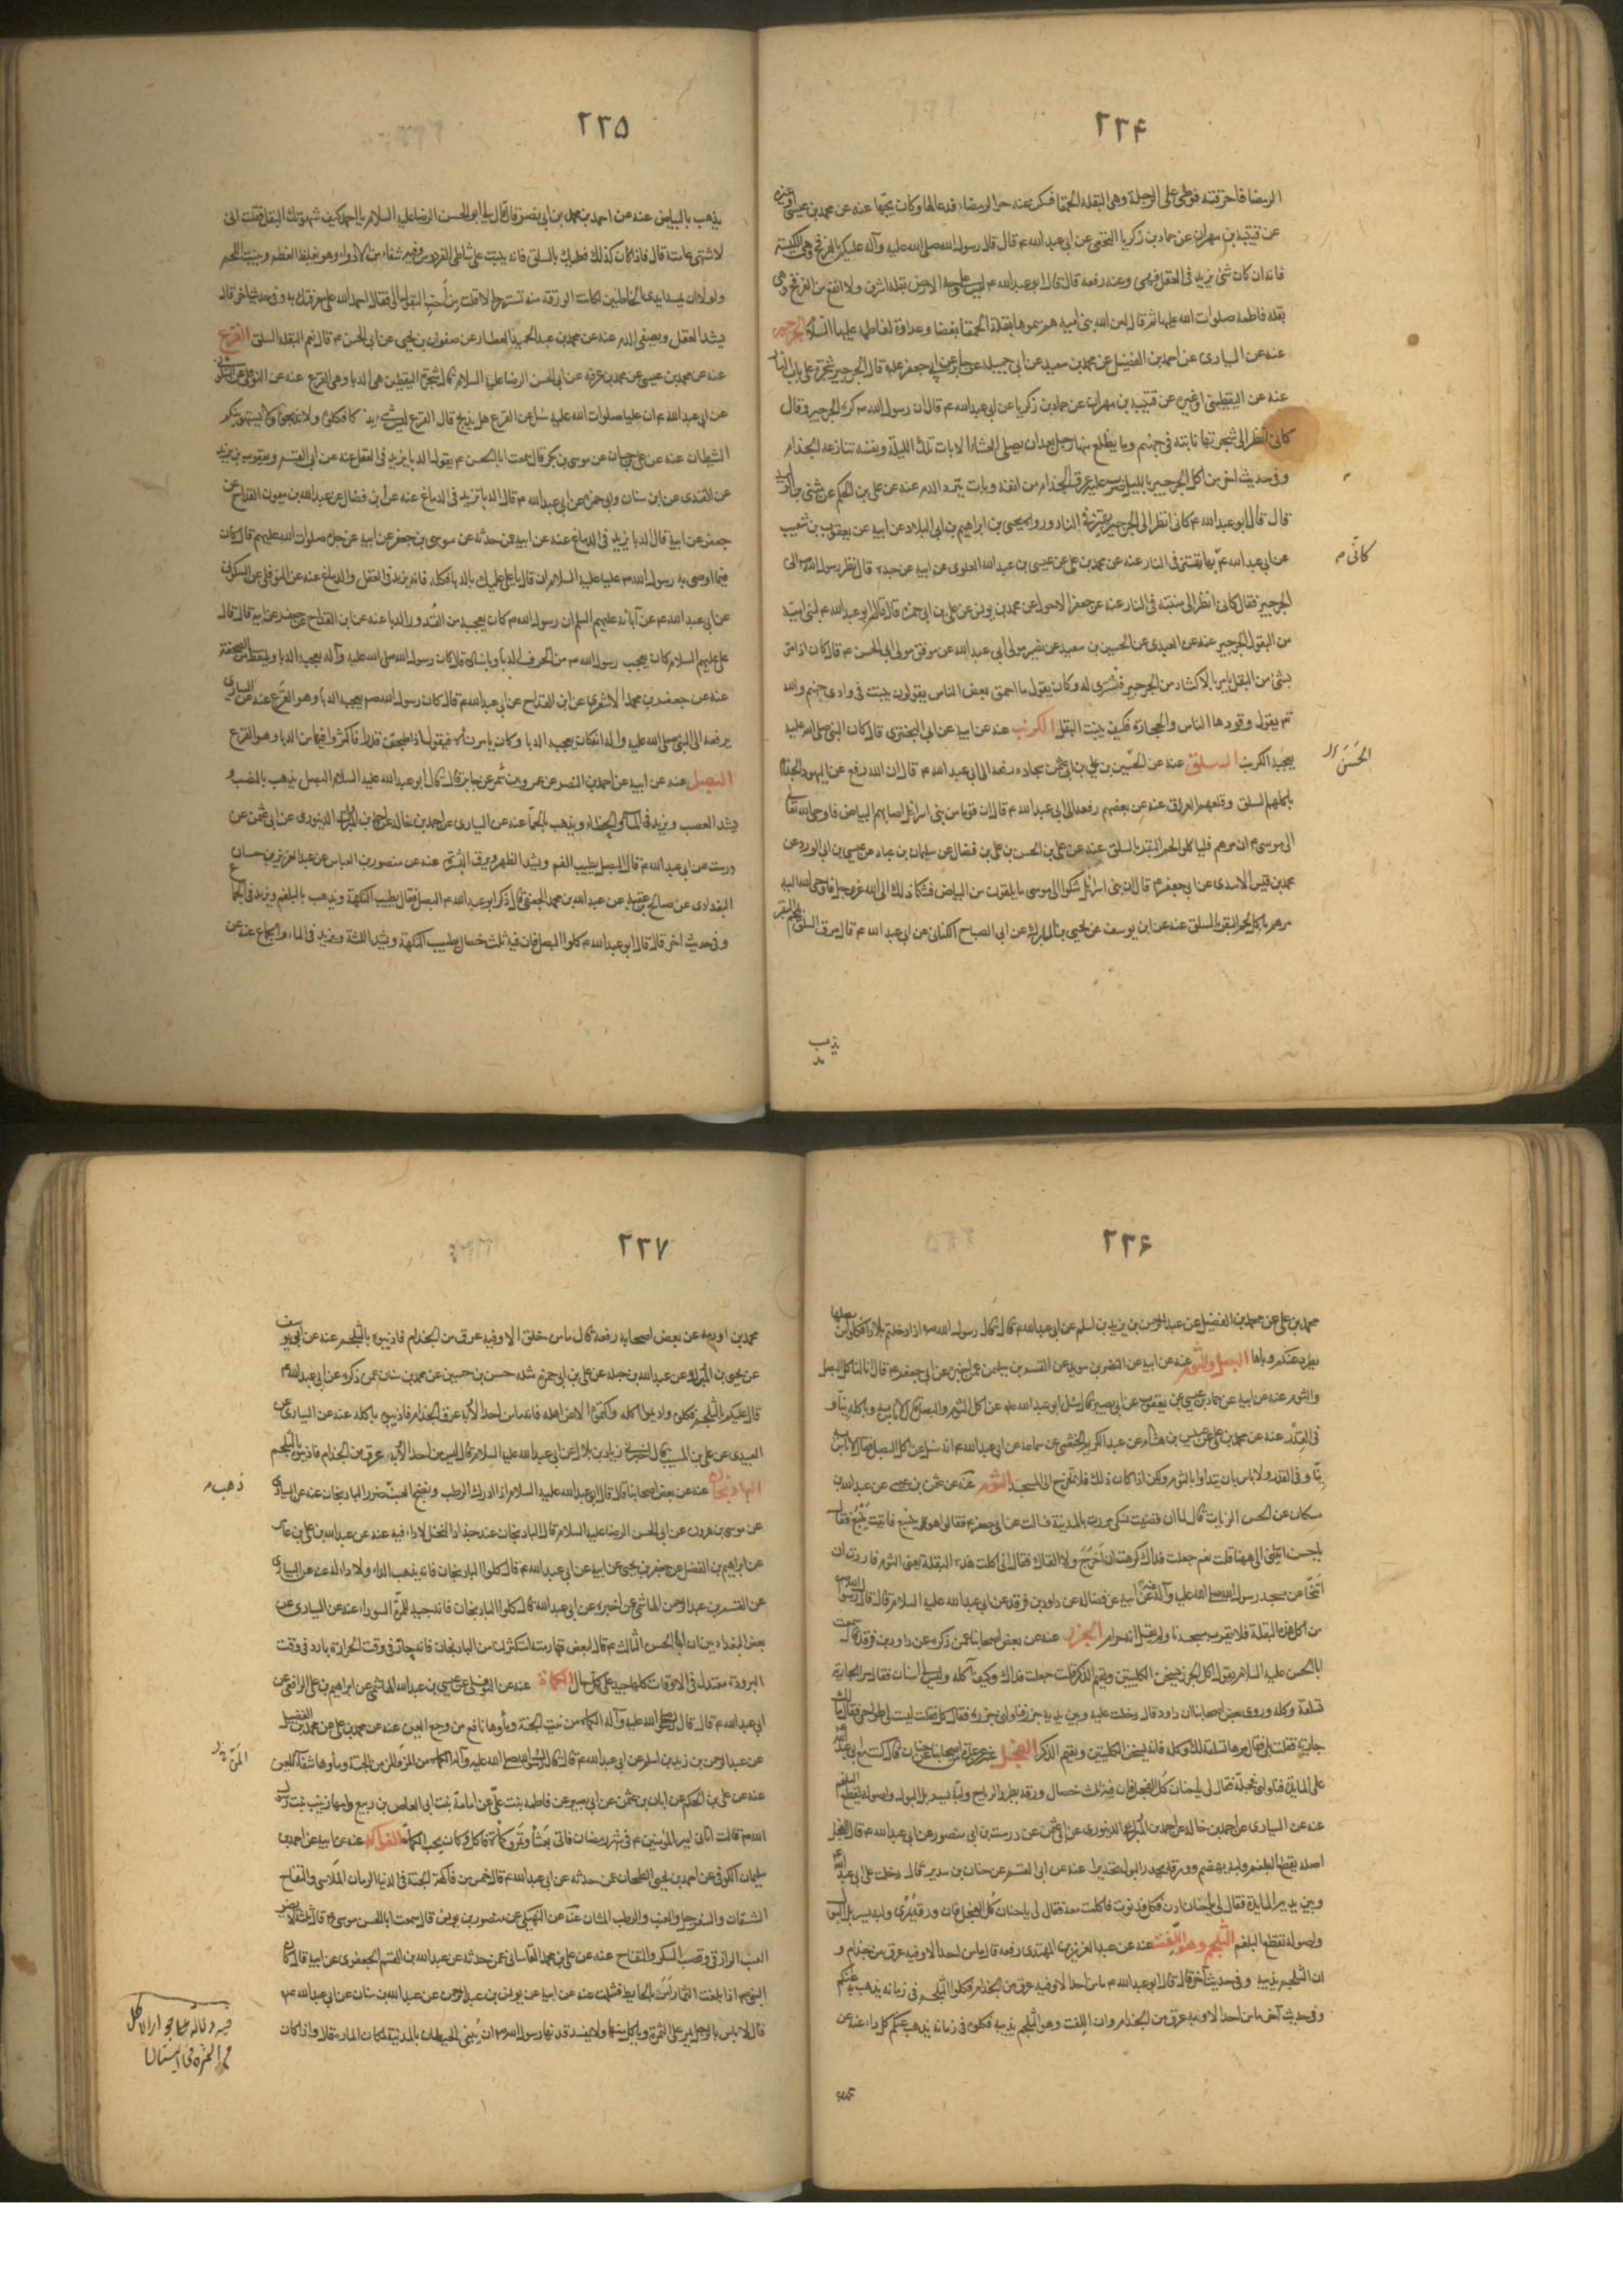 ٢٣۴
الرمضا فاحرقته فوطئ على الرجلة وهى البقلة الحمقا فسكن عنه حر الرمضاء فدعا لها وكان يحبها عنه عن محمد بن عيسى وغيره
عن قتيبة بن مهران عن حماد بن زكريا النخعى عن ابى عبدالله م قال قال رسول الله صلى الله عليه وآله عليكم بالفرفخ وهى المكيسة
فانه ان كان شئ يزيد فى العقل فهى وعنه رفعه قال قال ابو عبدالله م ليس على وجه الارض بقلة اشرف ولا انفع من الفرفخ وهى
بقلة فاطمة صلوات الله عليها ثم قال لعن الله بنى امية هم سموها بقلة الحمقا بغضا وعداوة لفاطمة عليها السلام الجرجير
عنه عن السيارى عن احمد بن الفضيل عن محمد بن سعيد عن ابى جميلة عن جابر عن ابى جعفر عليه قال الجرجير شجرة على باب النار
عنه عن اليقطينى او غيره عن قتيبة بن مهران عن حماد بن زكريا عن ابى عبدالله م قال ان رسول الله ص كره الجرجير وقال
كانى انظر الى شجرتها نابتة فى جهنم وما يظلع منها رجل بعد ان يصلى العشاء الا بات تلك الليلة ونفسه تنازعه الجذام
وفى حديث اخر من اكل الجرجير بالليل ضرب عليه عرق الجذام من انفه وبات ينزف الدم عنه عن على بن الحكم عن مثنى بن الوليد
قال قال ابو عبدالله م كانى انظر الى الجرجير يهتز فى النار ورواه يحيى بن ابراهيم بن ابى البلاد عن ابيه عن يعقوب بن شعيب
عن ابى عبدالله م عنه عن محمد بن على عن عيسى بن عبدالله العلوى عن ابيه عن جده قال نظر رسول الله ص الى
الجرجير فقال كانى انظر الى منبته فى النار عنه عن جعفر الاحول عن محمد بن يونس عن على بن ابى حمزة قال قال ابو عبدالله م لبنى امية
من البقول الجرجير عنه عن العبدى عن الحسين بن سعيد عن نصير مولى ابى عبدالله عن موفق مولى ابى الحسن م قال كان اذا امر
بشئ من البقل يامر بالاكثار من الجرجير فيشترى له وكان يقول ما احمق بعض الناس يقولون ينبت فى وادى جهنم والله
تع يقول وقودها الناس والحجارة فكيف ينبت البقل الكرنب عنه عن ابيه عن ابى البخترى قال كان النبى صلى الله عليه
يعجبه الكرنب السلق عنه عن الحسين بن على بن ابى عثمن سجادة رفعه الى ابى عبدالله م قال ان الله رفع عن اليهود الجذام
باكلهم السلق وقلعهم العروق عنه عن بعضهم رفعه الى ابى عبدالله م قال ان قوما من بنى اسرائيل اصابهم البياض فاوحى الله تعالى
الى موسى م ان مرهم فلياكلوا لحم البقر بالسلق عنه عن على بن الحسن بن على بن فضال عن سليمان بن عباد عن عيسى بن ابى الورد عن
محمد بن قيس الاسدى عن ابى جعفر م قال ان بنى اسرائيل شكوا الى موسى ما يلقون من البياض فشكا ذلك الى الله عز وجل فاوحى الله اليه
مرهم ياكلوا لحم البقر بالسلق عنه عن ابن يوسف عن يحيى بن المبارك عن ابى الصباح الكنانى عن ابى عبدالله م قال مرق السلق بلحم البقر
كانى م
الحسن
يذهب
٢٣۵
يذهب بالبياض عنه عن احمد بن محمد بن ابى نصر قال قال لى ابو الحسن الرضا عليه السلام يا احمد كيف شهوتك البقل فقلت انى
لاشتهى عامته قال فاذا كان كذلك فعليك بالسلق فانه ينبت على شاطئ الفردوس وفيه شفاء من الادواء وهو يغلظ العظم وينبت اللحم
ولولا ان تمسه ايدى الخاطئين لكانت الورقة منه تستر رجالا قلت من احب البقول الى فقال احمد الله على معرفتك به وفى حديث اخر قال
يشد العقل ويصفى الدم عنه عن محمد بن عبد الحميد العطار عن صفوان بن يحيى عن ابى الحسن م قال نعم البقلة السلق القرع
عنه عن محمد بن عيسى عن محمد بن عرفة عن ابى الحسن الرضا عليه السلام قال شجرة اليقطين هى الدبا وهى القرع عنه عن النوفلى عن السكونى
عن ابى عبدالله م ان عليا صلوات الله عليه سئل عن القرع هل يذبح قال القرع ليس شئ يذكى فكلوه ولا تذبحوه ولا يستهوينكم
الشيطان عنه عن على بن حسان عن موسى بن بكر قال سمعت ابا الحسن م يقول الدبا يزيد فى العقل عنه عن ابى القسم ويعقوب بن يزيد
عن القندى عن ابن سنان وابى حمزة عن ابى عبدالله م قال الدبا تزيد فى الدماغ عنه عن ابن فضال عن عبدالله بن ميمون القداح عن
جعفر عن ابيه قال الدبا يزيد فى الدماغ عنه عن ابيه عمن حدثه عن موسى بن جعفر عن ابيه عن جده صلوات الله عليهم قال كان
فيما اوصى به رسول الله ص عليا عليه السلام ان قال يا على عليك بالدبا فكله فانه يزيد فى العقل والدماغ عنه عن النوفلى عن السكونى
عن ابى عبدالله م عن آبائه عليهم السلم ان رسول الله ص كان يعجبه من القدور الدبا عنه عن ابن القداح عن جعفر عن ابيه قال قال
على عليهم السلام كان يعجب رسول الله ص
عنه عن جعفر بن محمد الاشعرى عن ابن القداح عن ابى عبدالله م قال كان رسول الله ص يعجبه الدبا وهو القرع عنه عن السيارى
يرفعه الى النبى صلى الله عليه وآله انه كان يعجبه الدبا وكان يامر نساءه فيقول اذا طبختن قدرا فاكثروا فيها من الدبا وهو القرع
البصل عنه عن ابيه عن احمد بن النضر عن عمرو بن شمر عن جابر قال قال ابو عبدالله عليه السلام البصل يذهب بالنصب و
يشد العصب ويزيد فى الماء والخطاء ويذهب بالحما عنه عن السيارى عن احمد بن خالد عن احمد بن المبارك الدينورى عن ابى عثمن عن
درست عن ابى عبدالله م قال البصل يطيب الفم ويشد الظهر ويرق البشرة عنه عن منصور بن العباس عن عبد العزيز بن حسان
البغدادى عن صالح بن عقبة عن عبدالله بن محمد الجعفى قال ذكر ابو عبدالله م البصل فقال يطيب النكهة ويذهب بالبلغم ويزيد فى الجماع
وفى حديث اخر قال قال ابو عبدالله م كلوا البصل فان فيه ثلث خصال يطيب النكهة ويشد اللثة ويزيد فى الماء والجماع عنه عن
٢٣۶
محمد بن على عن محمد بن الفضيل عن عبد الرحمن بن زيد بن اسلم عن ابى عبدالله م قال قال رسول الله ص اذا دخلتم بلادا فكلوا من بصلها
يطرد عنكم وباها البصل والثوم عنه عن ابيه عن النضر بن سويد عن القسم بن سليمن عمن اخبره عن ابى جعفر م قال انا لناكل البصل
والثوم عنه عن ابيه عن حماد بن عيسى عن يعقوب عن ابى بصير قال سئل ابو عبدالله عليه عن اكل الثوم والبصل قال لا باس به وباكله نيا و
فى القدر عنه عن محمد بن على عن عبيس بن هشام عن عبد الكريم الخثعمى عن سماعة عن ابى عبدالله م انه سئل عن اكل البصل فقال لا باس به
نيا وفى القدر ولا باس بان يتداوا بالثوم ولكن اذا كان ذلك فلا تخرج الى المسجد الثوم عنه عن عثمن بن عيسى عن عبدالله بن
مسكان عن الحسن الزيات قال لما ان قضيت نسكى مررت بالمدينة فسالت عن ابى جعفر م فقالوا هو بينبع فاتيت ينبع فقال
يا حسن اتيتنى الى ههنا قلت نعم جعلت فداك كرهت ان اخرج ولا القاك فقال انى اكلت هذه البقلة يعنى الثوم فاردت ان
اتنحا عن مسجد رسول الله صلى الله عليه وآله عنه عن ابيه عن فضالة عن داود بن فرقد عن ابى عبدالله عليه السلام قال قال رسول الله ص
من اكل هذه البقلة فلا يقرب مسجدنا ولم يقل انه حرام الجزر عنه عن بعض اصحابنا عمن ذكره عن داود بن فرقد قال سمعت
ابا الحسن عليه السلام يقول اكل الجزر يسخن الكليتين ويقيم الذكر قلت جعلت فداك وكيف آكله وليس لى اسنان فقال مر الجارية
تسلقه وكله وروى بعض اصحابنا ان داود قال دخلت عليه وبين يديه جزر فناولنى جزرة فقال كل فقلت ليست لى طواحن فقال اما لك
جارية فقلت بلى فقال مرها تسلقه لك وكله فانه يسخن الكليتين ويقيم الذكر الفجل عنه عن عدة من اصحابنا عن حنان قال كنت مع ابى عبدالله
على المائدة فناولنى فجلة فقال لى يا حنان كل الفجل فان فيه ثلث خصال ورقه يطرد الرياح ولبه يسربل البول واصوله يقطع البلغم
عنه عن السيارى عن احمد بن خالد عن احمد بن المبارك الدينورى عن ابى عثمن عن درست بن ابى منصور عن ابى عبدالله م قال الفجل
اصله يقطع البلغم ولبه يهضم وورقه يحدر البول تحديرا عنه عن ابى القسم عن حنان بن سدير قال دخلت على ابى عبدالله
وبين يديه المائدة فقال لى يا حنان ادن فكل فدنوت فاكلت معه فقال لى يا حنان كل الفجل فان ورقه يمرئ ولبه يسربل البول
واصوله تقطع البلغم الشلجم وهو اللفت عنه عن عبد العزيز بن المهتدى رفعه قال ما من احد الا وفيه عرق من جذام و
ان الشلجم يذيبه وفى حديث آخر قال قال ابو عبدالله م ما من احد الا وفيه عرق من الجذام فكلوا الشلجم فى زمانه يذهب به عنكم
وفى حديث آخر ما من احد الا وفيه عرق من الجذام وان اللفت وهو الشلجم يذيبه فكلوه فى زمانه يذهب عنكم كل داء عنه عن
محمد
٢٣٧
محمد بن اورمه عن بعض اصحابه رفعه قال ما من خلق الا وفيه عرق من الجذام فاذيبوه بالشلجم عنه عن ابى يوسف
عن يحيى بن المبارك عن عبدالله بن جبلة عن على بن ابى حمزة مثله حسن بن حسين عن محمد بن سنان عمن ذكره عن ابى عبدالله م
قال عليكم بالشلجم فكلوه واديموا اكله واكتموه الا عن اهله فانه ما من احد الا وبه عرق الجذام فاذيبوه باكله عنه عن السيارى عن
العبيدى عن على بن المسيب قال اخبرنى زياد بن بلال عن ابى عبدالله عليه السلام قال ليس من احد الا وبه عرق من الجذام فاذيبوه بالشلجم
الباذنجان عنه عن بعض اصحابنا قال قال ابو عبدالله عليه السلام اذا ادرك الرطب ونضج العنب ضرر الباذنجان عنه عن السيارى
عن موسى بن هرون عن ابى الحسن الرضا عليه السلام قال الباذنجان عند جذاذ النخل لا داء فيه عنه عن عبدالله بن على بن عامر
عن ابراهيم بن الفضل عن جعفر بن يحيى عن ابيه عن ابى عبدالله م قال كلوا الباذنجان فانه يذهب الداء ولا داء له عنه عن السيارى
عن القسم بن عبد الرحمن الهاشمى عمن اخبره عن ابى عبدالله قال كلوا الباذنجان فانه جيد للمرة السوداء عنه عن السيارى عن
بعض البغداديين ان ابا الحسن الثالث م قال لبعض قهارمته استكثر لنا من الباذنجان فانه حار فى وقت الحرارة بارد فى وقت
البرودة معتدل فى الاوقات كلها جيد على كل حال الكماة عنه عن النوفلى عن عيسى بن عبدالله الهاشمى عن ابراهيم بن على الرافعى عن
ابى عبدالله م قال قال رسول الله صلى الله عليه وآله الكماة من نبت الجنة وماؤها نافع من وجع العين عنه عن محمد بن على عن محمد بن الفضيل
عن عبد الرحمن بن زيد بن اسلم عن ابى عبدالله م قال قال رسول الله صلى الله عليه وآله الكماة من المن والمن من الجنة وماؤها شفاء للعين
عنه عن على بن الحكم عن ابان بن عثمن عن ابى بصير عن فاطمة بنت على عن امامة بنت ابى العاص بن ربيع وامها زينب بنت رسول
الله ص قالت اتانى امير المؤمنين م فى شهر رمضان فاتى بعشاء وتمر وكماة فاكل وكان يحب الكماة الفواكه عنه عن ابيه عن احمد بن
سليمان الكوفى عن احمد بن يحيى الطحان عمن حدثه عن ابى عبدالله م قال خمس من فاكهة الجنة فى الدنيا الرمان الملاسى والتفاح
الشعشعان والسفرجل والعنب والرطب المشان عنه عن النهيكى عن منصور بن يونس قال سمعت ابا الحسن موسى م قال ثلثة لا يضر
العنب الرازقى وقصب السكر والتفاح عنه عن على بن محمد القاسانى عمن حدثه عن عبدالله بن القسم الجعفرى عن ابيه قال كان
النبى ص اذا بلغت الثمار امر بالحيطان فثلمت عنه عن ابيه عن يونس بن عبد الرحمن عن عبدالله بن سنان عن ابى عبدالله م
قال لا باس بالرجل يمر على الثمرة وياكل منها ولا يفسد قد نها رسول الله ص ان يبنى الحيطان بالمدينة لمكان المارة قال واذا كان
ذهب م
المن